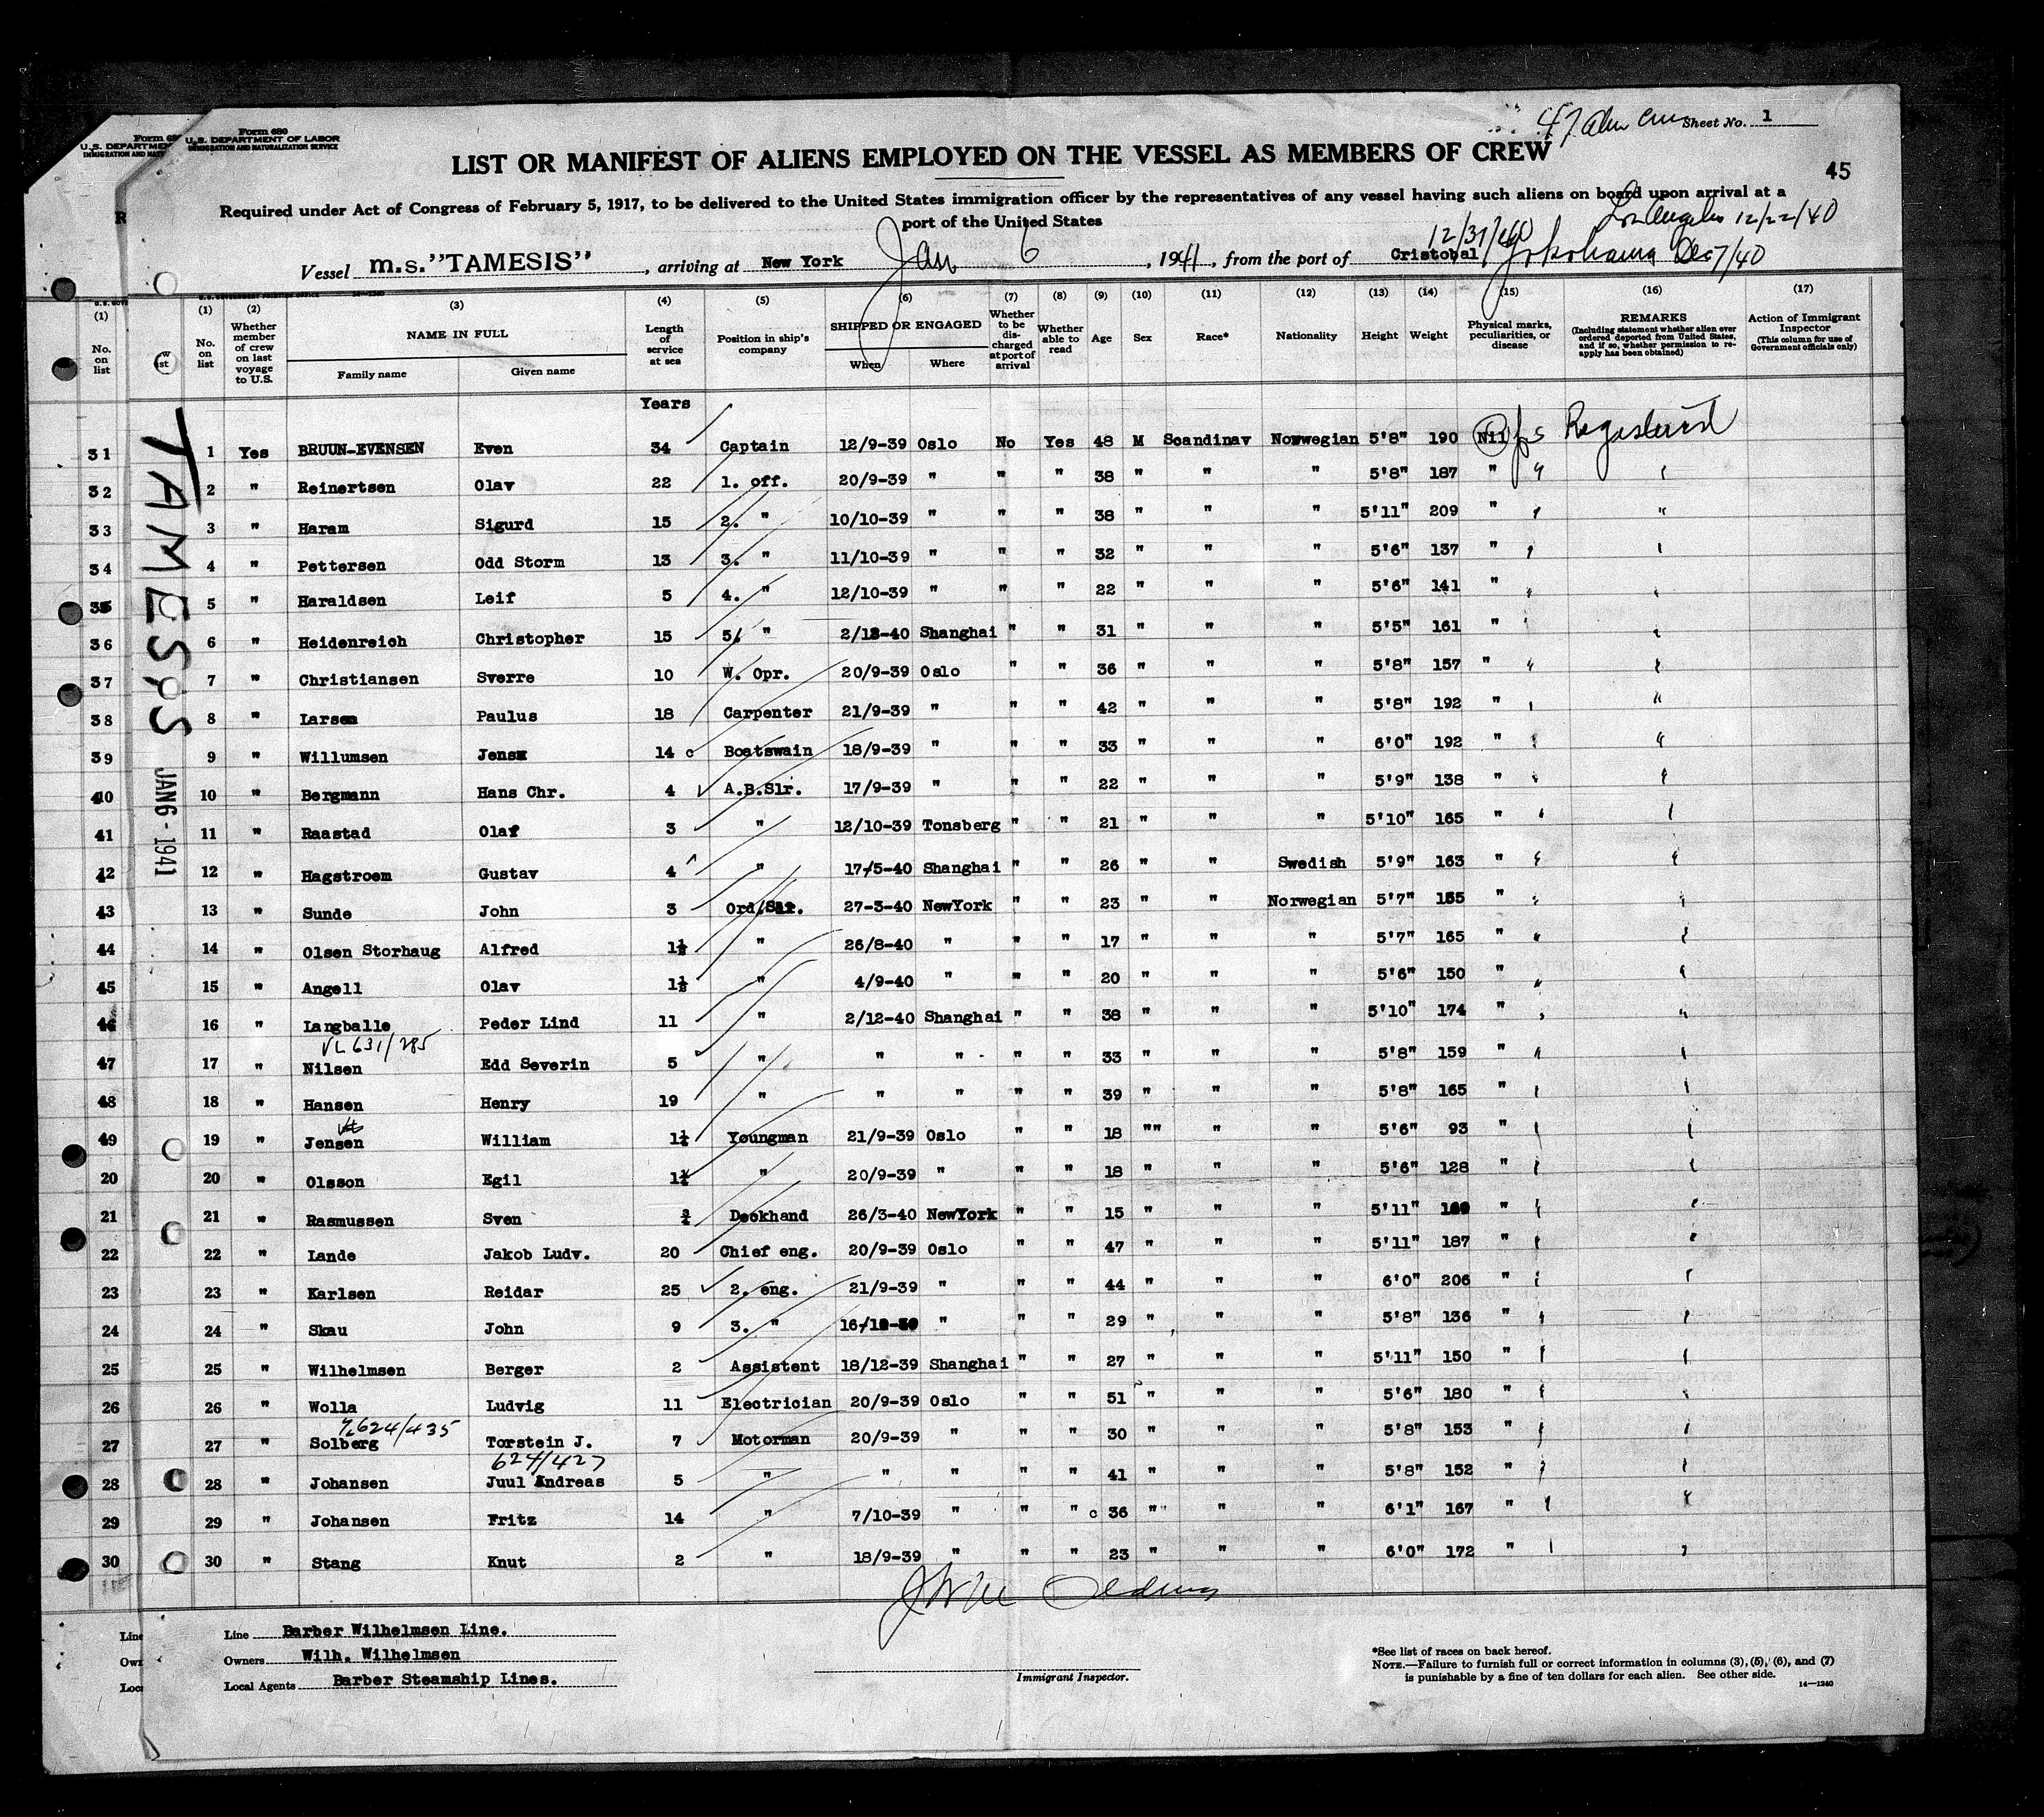 Form 680
U.S. DEPARTMENT OF LABOR
IMMIGRATION AND NATURALIZATION SERVICE
Sheet No. 1
45
LIST OR MANIFEST OF ALIENS EMPLOYED ON THE VESSEL AS MEMBERS OF CREW
Required under Act of Congress of February 5, 1917, to be delivered to the United States immigration officer by the representatives of any vessel having such aliens on board upon arrival at a
port of the United States
Los Angeles 12/22/40
12/31/40
Vessel m.s. "TAMESIS", arriving at New York Jan 6, 1941, from the port of Cristobal Yokohama Dec 7/40
(1) (1) (2) (3) (4) (5) (6) (7) (8) (9) (10) (11) (12) (13) (14) (15) (16) (17)
No. on list
No. on list
Whether member of crew on last voyage to U.S.
NAME IN FULL
Family name
Given name
Length of service at sea
Position in ship's company
SHIPPED OR ENGAGED
When
Where
Whether to be discharged at port of arrival
Whether able to read
Age
Sex
Race*
Nationality
Height
Weight
Physical marks, peculiarities, or disease
REMARKS
(Including statement whether alien ever ordered deported from United States, and if so, whether permission to reapply has been obtained)
Action of Immigrant Inspector
(This column for use of Government officials only)
TAMESIS JAN 6 - 1941
Years
31 1 Yes BRUUN-EVENSEN Even 34 Captain 12/9-39 Oslo No Yes 48 M Scandinav Norwegian 5'8" 190 Nil Registered
32 2 " Reinertsen Olav 22 1. off. 20/9-39 " " " 38 " " " 5'8" 187 "
33 3 " Haram Sigurd 15 2. " 10/10-39 " " " 38 " " " 5'11" 209 "
34 4 " Pettersen Odd Storm 13 3. " 11/10-39 " " " 32 " " " 5'6" 137 "
35 5 " Haraldsen Leif 5 4. " 12/10-39 " " " 22 " " " 5'6" 141 "
36 6 " Heidenreich Christopher 15 5. " 2/12-40 Shanghai " " 31 " " " 5'5" 161 "
37 7 " Christiansen Sverre 10 W. Opr. 20/9-39 Oslo " " 36 " " " 5'8" 157 "
38 8 " Larsen Paulus 18 Carpenter 21/9-39 " " " 42 " " " 5'8" 192 "
39 9 " Willumsen Jens 14 Boatswain 18/9-39 " " " 33 " " " 6'0" 192 "
40 10 " Bergmann Hans Chr. 4 A.B.Slr. 17/9-39 " " " 22 " " " 5'9" 138 "
41 11 " Raastad Olaf 3 " 12/10-39 Tonsberg " " 21 " " " 5'10" 165 "
42 12 " Hagstroem Gustav 4 " 17-5-40 Shanghai " " 26 " " Swedish 5'9" 163 "
43 13 " Sunde John 3 Ord.Slr. 27-3-40 NewYork " " 23 " " Norwegian 5'7" 155 "
44 14 " Olsen Storhaug Alfred 1½ " 26/8-40 " " " 17 " " " 5'7" 165 "
45 15 " Angell Olav 1½ " 4/9-40 " " " 20 " " " 5'6" 150 "
46 16 " Langballe Peder Lind 11 " 2/12-40 Shanghai " " 38 " " " 5'10" 174 "
VL 631/285
47 17 " Nilsen Edd Severin 5 " " " " " 33 " " " 5'8" 159 "
48 18 " Hansen Henry 19 " " " " " 39 " " " 5'8" 165 "
49 19 " Jensen William 1¼ Youngman 21/9-39 Oslo " " 18 "" " " 5'6" 93 "
20 20 " Olsson Egil 1¼ " 20/9-39 " " " 18 " " " 5'6" 128 "
21 21 " Rasmussen Sven ¾ Deckhand 26/3-40 NewYork " " 15 " " " 5'11" "
22 22 " Lande Jakob Ludv. 20 Chief eng. 20/9-39 Oslo " " 47 " " " 5'11" 187 "
23 23 " Karlsen Reidar 25 2. eng. 21/9-39 " " " 44 " " " 6'0" 206 "
24 24 " Skau John 9 3. " " " " 29 " " " 5'8" 136 "
25 25 " Wilhelmsen Berger 2 Assistent 18/12-39 Shanghai " " 27 " " " 5'11" 150 "
26 26 " Wolla Ludvig 11 Electrician 20/9-39 Oslo " " 51 " " " 5'6" 180 "
624/435
27 27 " Solberg Torstein J. 7 Motorman 20/9-39 " " " 30 " " " 5'8" 153 "
624/427
28 28 " Johansen Juul Andreas 5 " " " " " 41 " " " 5'8" 152 "
29 29 " Johansen Fritz 14 " 7/10-39 " " " 36 " " " 6'1" 167 "
30 30 " Stang Knut 2 " 18/9-39 " " " 23 " " " 6'0" 172 "
Line Barber Wilhelmsen Line.
Owners Wilh. Wilhelmsen
Local Agents Barber Steamship Lines.
Immigrant Inspector.
*See list of races on back hereof.
NOTE.—Failure to furnish full or correct information in columns (3), (5), (6), and (7)
is punishable by a fine of ten dollars for each alien. See other side.
14—1240